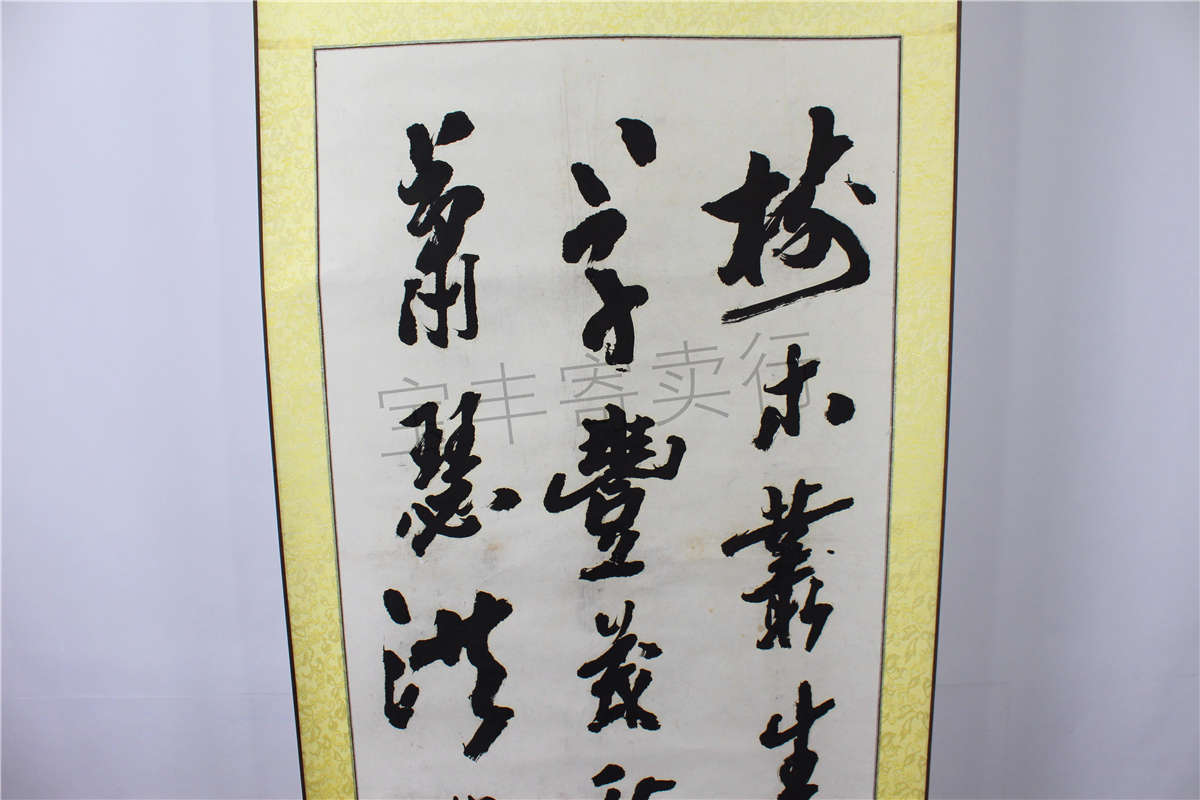 樹木叢生
草豐茂
蕭瑟洪
宝丰寄卖行